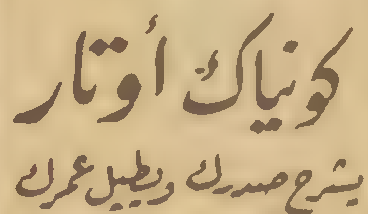 كونياك أوتار
يشرح صدرك ويطيل عمرك